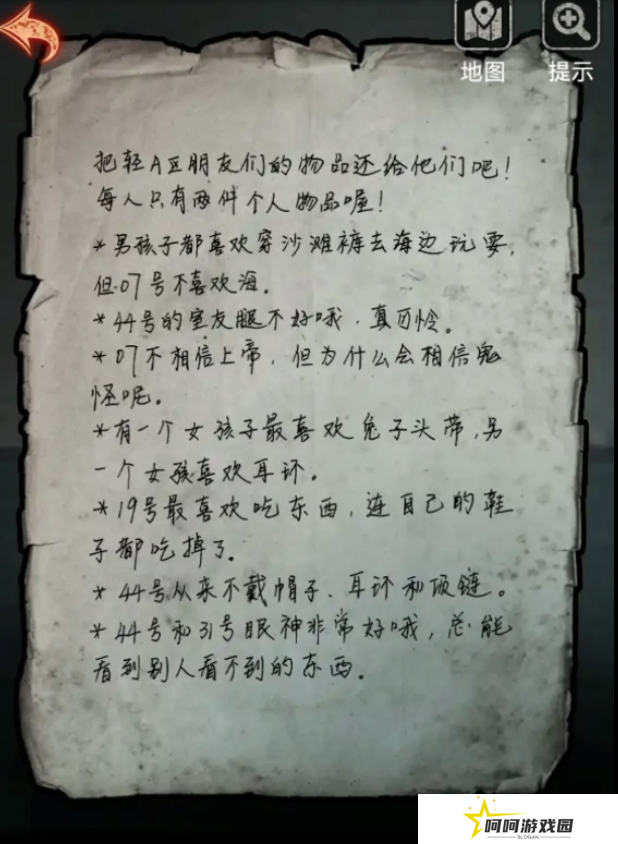 地图
提示
把轻A区朋友们的物品还给他们吧!
每人只有两件个人物品喔!
*男孩子都喜欢穿沙滩裤去海边玩耍,
但07号不喜欢海。
*44号的室友腿不好哦,真可怜。
*07不相信上帝,但为什么会相信鬼
怪呢。
*有一个女孩子最喜欢兔子头带,另
一个女孩喜欢耳环。
*19号最喜欢吃东西,连自己的鞋
子都吃掉了。
*44号从来不戴帽子、耳环和项链。
*44号和31号眼神非常好哦,总能
看到别人看不到的东西。
呵呵游戏园
SLOGAN